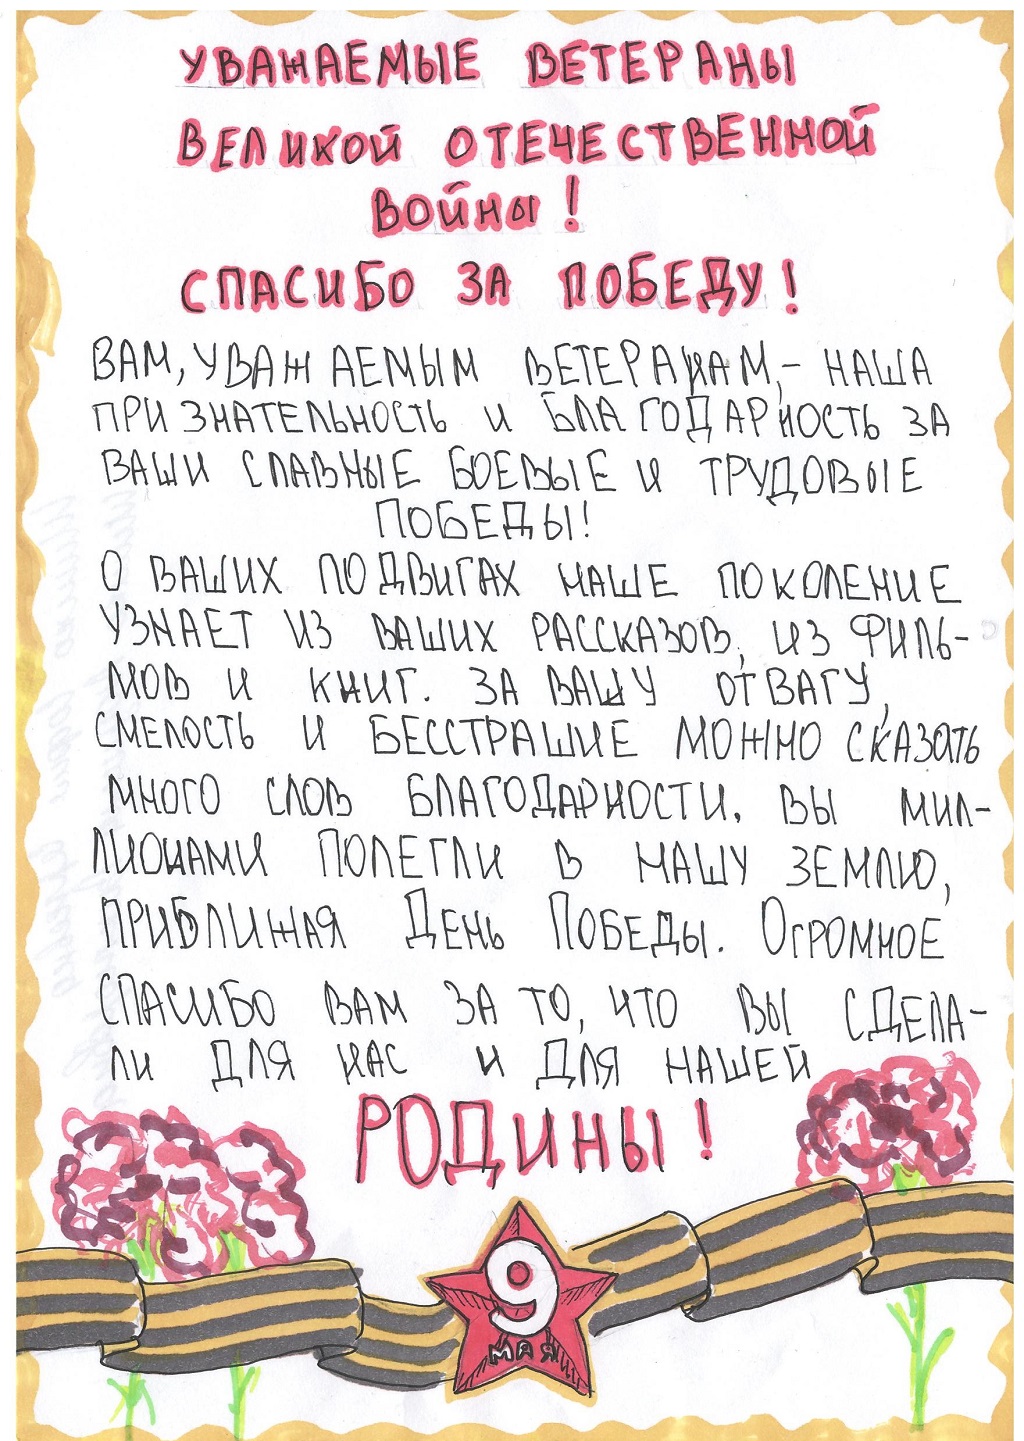 УВАЖАЕМЫЕ ВЕТЕРАНЫ
ВЕЛИКОЙ ОТЕЧЕСТВЕННОЙ
ВОЙНЫ!
СПАСИБО ЗА ПОБЕДУ!
ВАМ, УВАЖАЕМЫМ ВЕТЕРАНАМ,- НАША
ПРИЗНАТЕЛЬНОСТЬ И БЛАГОДАРНОСТЬ ЗА
ВАШИ СЛАВНЫЕ БОЕВЫЕ И ТРУДОВЫЕ
ПОБЕДЫ!
О ВАШИХ ПОДВИГАХ НАШЕ ПОКОЛЕНИЕ
УЗНАЕТ ИЗ ВАШИХ РАССКАЗОВ, ИЗ ФИЛЬ-
МОВ И КНИГ. ЗА ВАШУ ОТВАГУ,
СМЕЛОСТЬ И БЕССТРАШИЕ МОЖНО СКАЗАТЬ
МНОГО СЛОВ БЛАГОДАРНОСТИ. ВЫ МИЛ-
ЛИОНАМИ ПОЛЕГЛИ В НАШУ ЗЕМЛЮ,
ПРИБЛИЖАЯ ДЕНЬ ПОБЕДЫ. ОГРОМНОЕ
СПАСИБО ВАМ ЗА ТО, ЧТО ВЫ СДЕЛА-
ЛИ ДЛЯ НАС И ДЛЯ НАШЕЙ
РОДИНЫ!
9
МАЯ